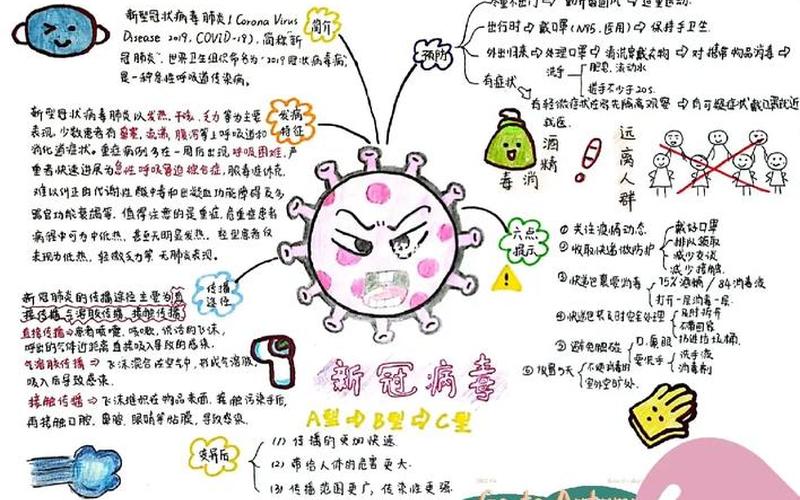 新型冠状病毒肺炎(Corona Virus
Disease 2019, COVID-19), 简称"新
冠肺炎", 世界卫生组织命名为"2019冠状病毒病",
是一种急性呼吸道传染病。
简介
预防
出行时⇒戴口罩(N95, 医用)⇒保持手卫生.
外出归来⇒处理口罩⇒清洗穿戴衣物⇒对携带物品消毒
洗手
肥皂, 流动水
搓手不少于20S.
有症状
有轻微症状应居先隔离观察⇒有可疑症状戴口罩就近
就医.
新型冠状病毒肺炎以发热, 干咳, 乏力等为主要
表现, 少数患者有鼻塞, 流涕, 腹泻等上呼吸道和
消化道症状。重症病例多在一周后出现呼吸困难, 严
重者快速进展为急性呼吸窘迫综合症, 脓毒症休克,
难以纠正的代谢性酸中毒和出凝血功能障碍及多
器官功能衰竭等. 值得注意的是重症, 危重症患者
病程中可为中低热, 甚至无明显发热, 轻型患者仅
表现为低热, 轻微乏力等 无肺炎表现。
发病
特征
酒精
消毒
远离人群
新冠肺炎的传播途径主要为直
接传播, 气溶胶传播, 接触传播
传播
途径
直接传播⇒患者喷嚏, 咳嗽, 说话的飞沫,
呼出的气体近距离直接吸入导致的感染.
气溶胶传播⇒飞沫混合在空气中, 形成气溶胶,
吸入后导致感染.
接触传播⇒飞沫堆积在物品表面, 接触污染手后,
再接触口腔, 鼻腔, 眼睛等粘膜, 导致感染.
六点
提示
① 关注疫情动态
② 收取快递做防护
戴好口罩
排队领取
减少交谈
减少接触.
③ 快递包裹要消毒
75%酒精/84消毒液
打开一层消毒一层.
④ 快递包装及时安全处理
及时拆开
不带回家
扔进垃圾桶.
⑤ 避免触碰
口.鼻.眼
要洗手
洗手液
消毒剂
室外空旷处.
新冠病毒
A型⇒B型⇒C型
变异后
(1) 传播的更加快速
(2) 带给人体的危害更大.
(3) 传播范围更广, 传染性更强.